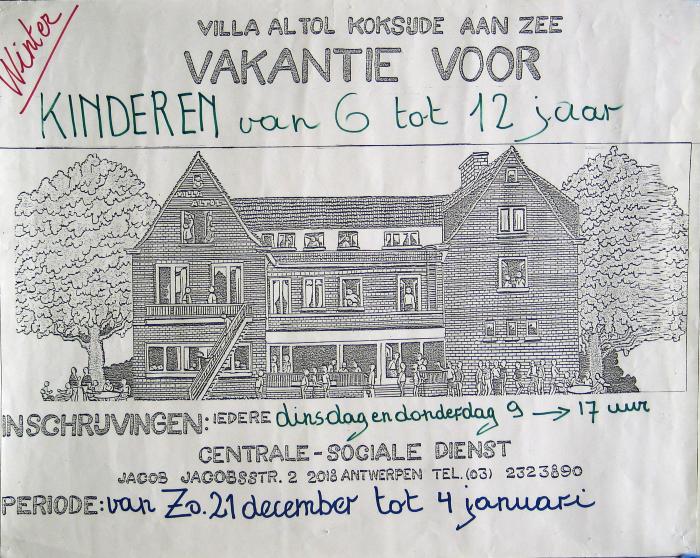 Winter
VILLA ALTOL KOKSIJDE AAN ZEE
VAKANTIE VOOR
KINDEREN van 6 tot 12 jaar
INSCHRIJVINGEN: IEDERE dinsdag en donderdag 9 → 17 uur
CENTRALE-SOCIALE DIENST
JACOB JACOBSSTR. 2 2018 ANTWERPEN TEL. (03) 2323890
PERIODE: van Zo. 21 december tot 4 januari